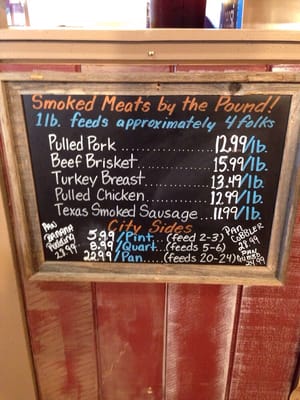 Smoked Meats by the Pound!
1 lb. feeds approximately 4 folks
Pulled Pork ............ 12.99/lb.
Beef Brisket ............ 15.99/lb.
Turkey Breast ............ 13.49/lb.
Pulled Chicken ............ 12.99/lb.
Texas Smoked Sausage ..... 11.99/lb.
City Sides
5.99/Pint....(feed 2-3)
8.99/Quart..(feeds 5-6)
22.99/Pan.....(feeds 20-24)
PAN
BANANA
Pudding
PAN
COBBLER
PAN